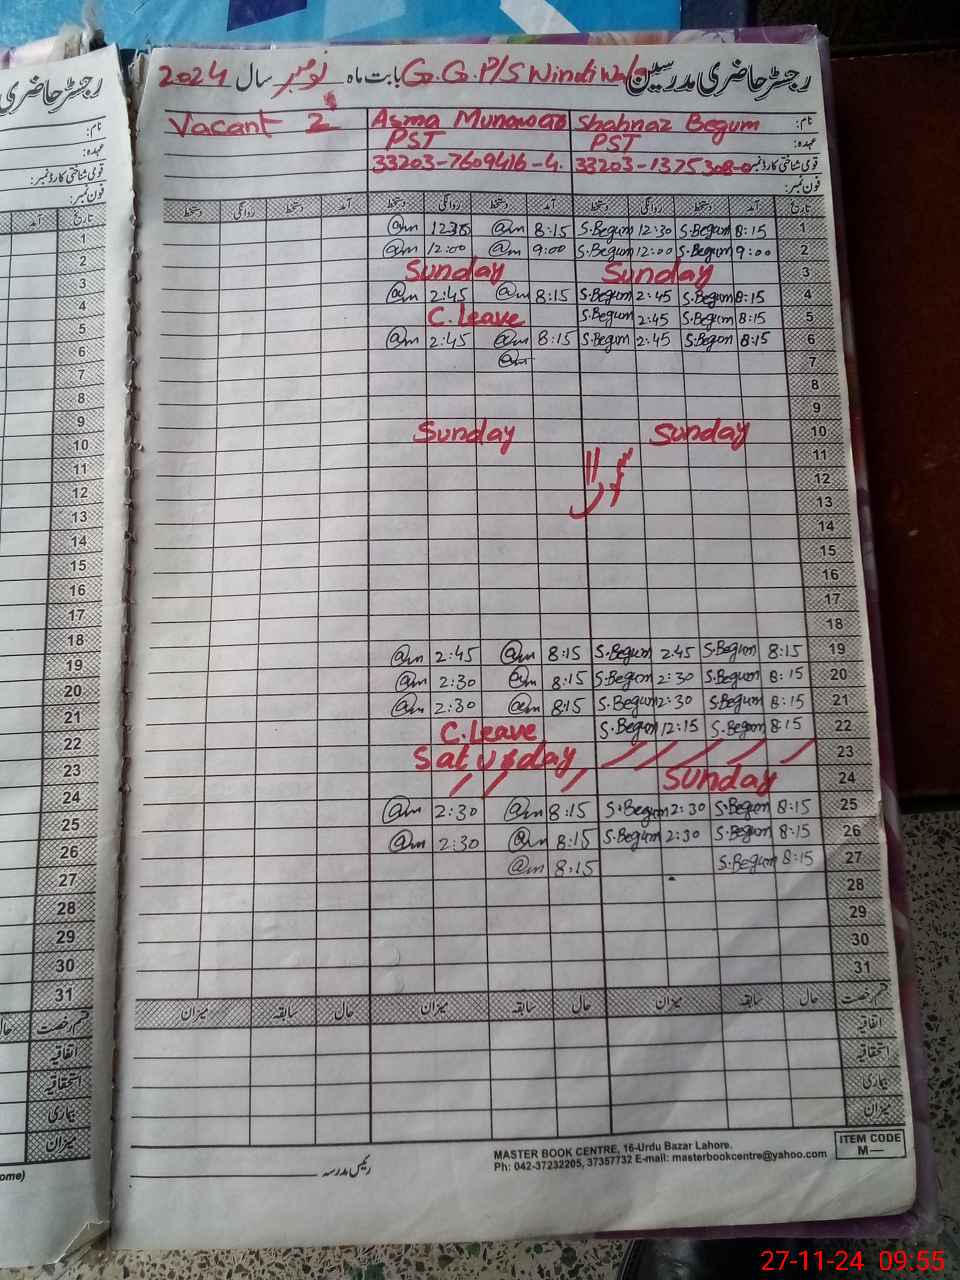 رجسٹر حاضری مدرسین G.G.P/S Windi Wala بابت ماہ نومبر سال 2024
نام: Shahnaz Begum Asma Munawar Vacant 2
عہدہ: PST PST
قومی شناختی کارڈ نمبر: 33203-1375308-0 33203-7609416-4
فون نمبر:
تاریخ آمد دستخط روانگی دستخط آمد دستخط روانگی دستخط آمد دستخط روانگی دستخط
1 8:15 S.Begum 12:30 S.Begum 8:15 @m 12:30 @m
2 9:00 S.Begum 12:00 S.Begum 9:00 @m 12:00 @m
3 Sunday Sunday
4 8:15 S.Begum 2:45 S.Begum 8:15 @m 2:45 @m
5 8:15 S.Begum 2:45 S.Begum C.Leave
6 8:15 S.Begum 2:45 S.Begum 8:15 @m 2:45 @m
7 @m
8
9
10 Sunday Sunday
11
12
13
14
15
16
17
18
19 8:15 S.Begum 2:45 S.Begum 8:15 @m 2:45 @m
20 8:15 S.Begum 2:30 S.Begum 8:15 @m 2:30 @m
21 8:15 S.Begum 2:30 S.Begum 8:15 @m 2:30 @m
22 8:15 S.Begum 12:15 S.Begum C.Leave
23 Saturday
24 Sunday
25 8:15 S.Begum 2:30 S.Begum 8:15 @m 2:30 @m
26 8:15 S.Begum 2:30 S.Begum 8:15 @m 2:30 @m
27 8:15 S.Begum 8:15 @m
28
29
30
31
قسم رخصت حال سابقہ میزان حال سابقہ میزان حال سابقہ میزان
اتفاقیہ
استحقاقیہ
بیماری
میزان
رئیس مدرسہ
MASTER BOOK CENTRE, 16-Urdu Bazar Lahore.
Ph: 042-37232205, 37357732 E-mail: masterbookcentre@yahoo.com
ITEM CODE
M—
رجسٹر حاضری
نام:
عہدہ:
قومی شناختی کارڈ نمبر:
فون نمبر:
تاریخ آمد
1
2
3
4
5
6
7
8
9
10
11
12
13
14
15
16
17
18
19
20
21
22
23
24
25
26
27
28
29
30
31
قسم رخصت حال
اتفاقیہ
استحقاقیہ
بیماری
میزان
27-11-24 09:55